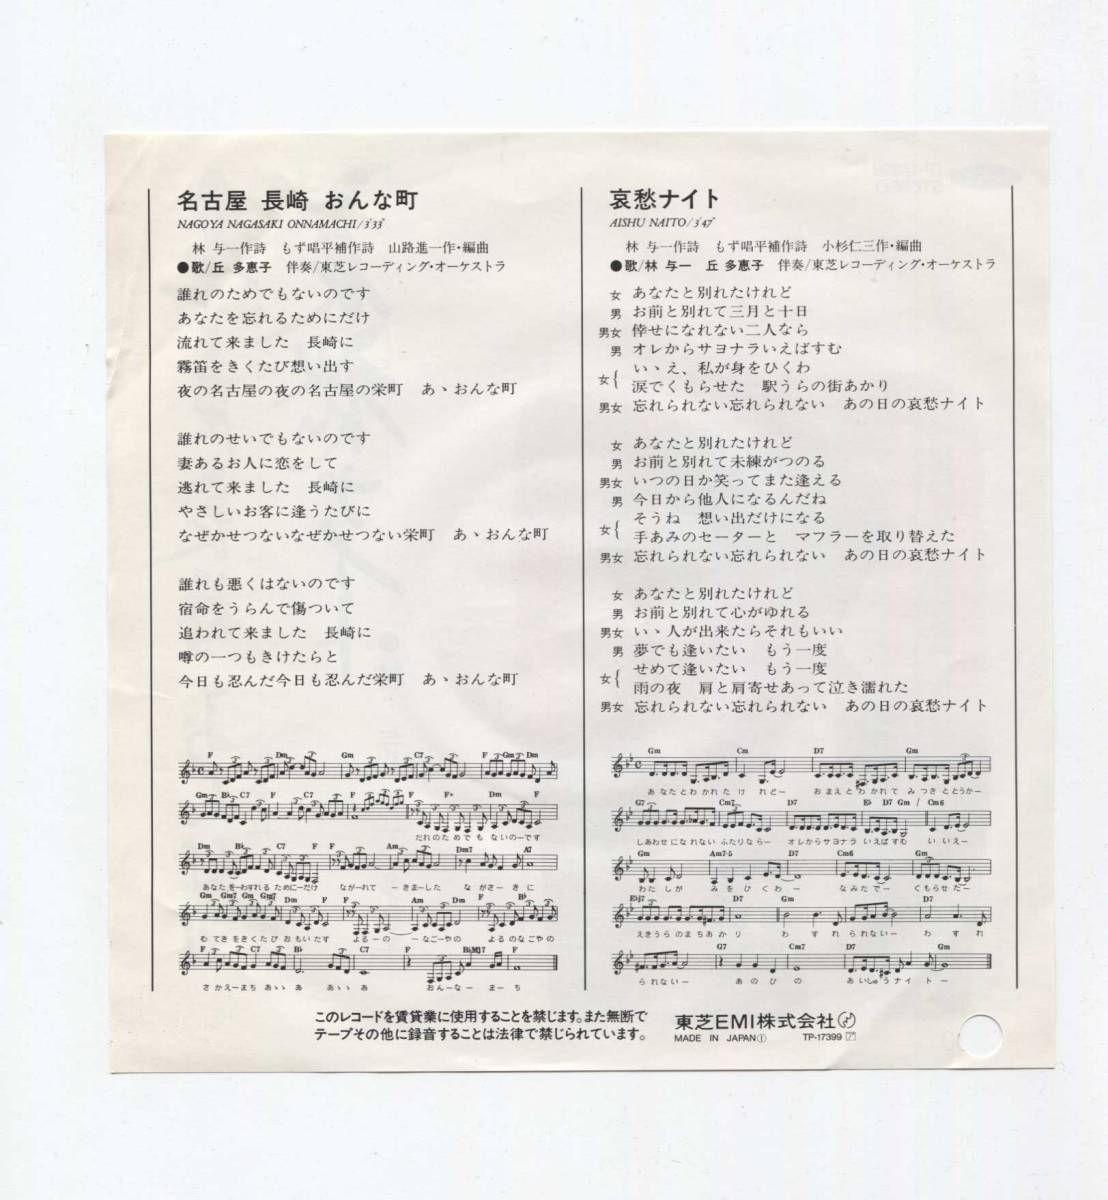 名古屋 長崎 おんな町
NAGOYA NAGASAKI ONNAMACHI/3'33"
林 与一作詩 もず唱平補作詩 山路進一作・編曲
●歌/丘 多恵子 伴奏/東芝レコーディング・オーケストラ
誰れのためでもないのです
あなたを忘れるためにだけ
流れて来ました 長崎に
霧笛をきくたび想い出す
夜の名古屋の夜の名古屋の栄町 あゝおんな町
誰れのせいでもないのです
妻あるお人に恋をして
逃れて来ました 長崎に
やさしいお客に逢うたびに
なぜかせつないなぜかせつない栄町 あゝおんな町
誰れも悪くはないのです
宿命をうらんで傷ついて
追われて来ました 長崎に
噂の一つもきけたらと
今日も忍んだ今日も忍んだ栄町 あゝおんな町
F Dm Gm C7 F Gm Dm
Gm B♭ C7 F F F+ Dm F
だれのためでも ないのーです
Dm B♭ C7 F F Am Dm7 A7
あなたをーわすれる ためにーだけ ながーれて ーきまーした ながさーきに
Gm Gm7 Gm Gm7 Dm F F Am Dm F B♭
むてききをきくたび おもいだす よるーの ーなごーやの よるのなごやの
F C7 F C7 B♭ C7 F B♭M7 F
さかえーまち あゝいあ あゝいあ おんーなー まーち
哀愁ナイト
AISHU NAITO/3'47"
林 与一作詩 もず唱平補作詩 小杉仁三作・編曲
●歌/林 与一 丘 多恵子 伴奏/東芝レコーディング・オーケストラ
女 あなたと別れたけれど
男 お前と別れて三月と十日
男女 倖せになれない二人なら
男 オレからサヨナラいえばすむ
女{ いゝえ、私が身をひくわ
涙でくもらせた 駅うらの街あかり
男女 忘れられない忘れられない あの日の哀愁ナイト
女 あなたと別れたけれど
男 お前と別れて未練がつのる
男女 いつの日か笑ってまた逢える
男 今日から他人になるんだね
女{ そうね 想い出だけになる
手あみのセーターと マフラーを取り替えた
男女 忘れられない忘れられない あの日の哀愁ナイト
女 あなたと別れたけれど
男 お前と別れて心がゆれる
男女 いゝ人が出来たらそれもいい
男 夢でも逢いたい もう一度
女{ せめて逢いたい もう一度
雨の夜 肩と肩寄せあって泣き濡れた
男女 忘れられない忘れられない あの日の哀愁ナイト
Gm Cm D7 Gm
あなたとわかれたけ れどー おまえとわかれて みつきととうかー
G7 Cm7 D7 E♭ D7 Gm / Cm6
しあわせになれない ふたりならー オレからサヨナラ いえばすむ いいえー
Gm Am7-5 D7 Cm6 Gm
わたしが みをひくわー なみだでー くもらせたー
E♭7 D7 Gm D7
えきうらのまちあかり わすれられないー わすれ
G7 Cm7 D7 Gm
られないー あのひの あいしゅうナイトー
このレコードを賃貸業に使用することを禁じます。また無断で
テープその他に録音することは法律で禁じられています。
東芝EMI株式会社
MADE IN JAPAN① TP-17399